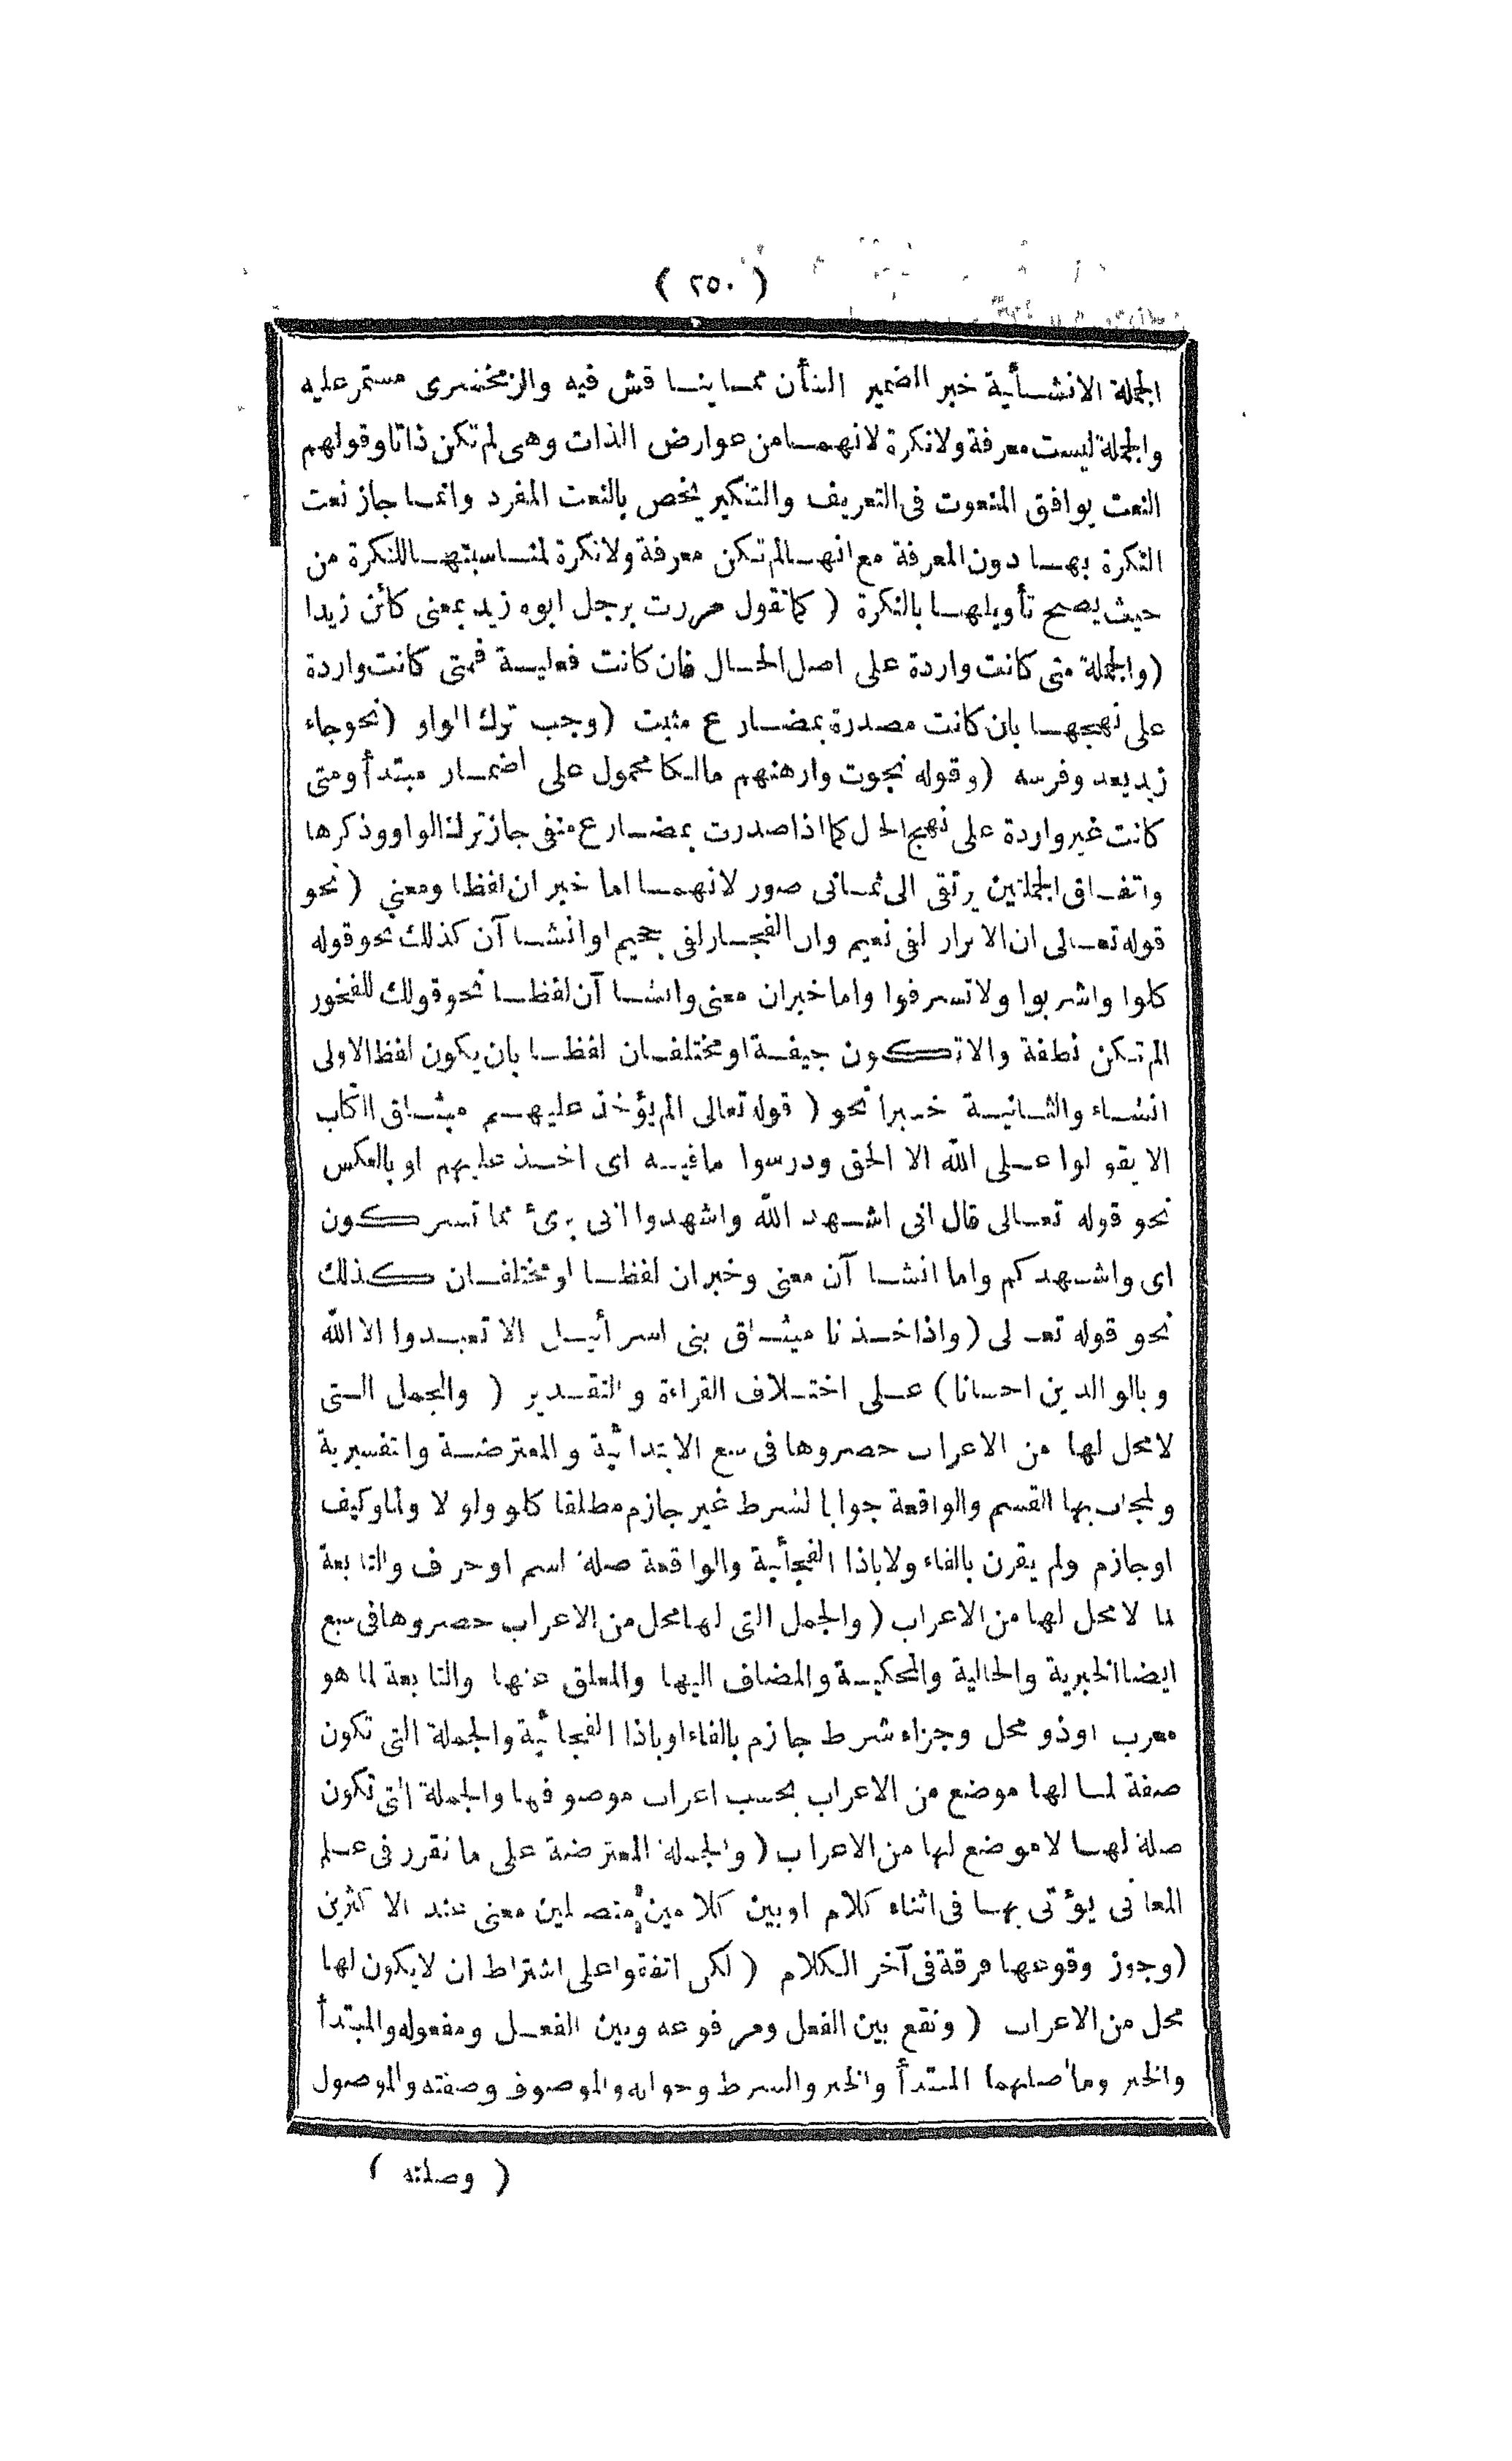 ( ٢٥٠ )
الجملة الانشأية خبر الضمير الشأن مما يناقش فيه والزمخشرى مستمر عليه
والجملة ليست معرفة ولا نكرة لانهما من عوارض الذات وهى لم تكن ذاتا وقولهم
النعت يوافق المنعوت فى التعريف والتنكير يخص بالنعت المفرد وانما جاز نعت
النكرة بها دون المعرفة مع انها لم تكن معرفة ولا نكرة لمناسبتها للنكرة من
حيث يصح تأويلها بالنكرة ( كما تقول مررت برجل ابوه زيد بمعنى كائن زيدا
(والجملة متى كانت واردة على اصل الحال فان كانت فعلية فمتى كانت واردة
على نهجها بان كانت مصدرة بمضارع مثبت (وجب ترك الواو (نحو جاء
زيد يعد وفرسه (وقوله نجوت وارهنهم مالكا محمول على اضمار مبتدأ ومتى
كانت غير واردة على نهج الحال كما اذا صدرت بمضارع منفى جاز ترك الواو وذكرها
واتفاق الجملتين يرتقى الى ثمانى صور لانهما اما خبر ان لفظا ومعنى ( نحو
قوله تعالى ان الابرار لفى نعيم وان الفجار لفى جحيم او انشا آن كذلك نحو قوله
كلوا واشربوا ولا تسرفوا واما خبران معنى وانشا آن لفظا نحو قولك للفخور
الم تكن نطفة والا تكون جيفة او مختلفان لفظا بان يكون لفظ الاولى
انشاء والثانية خبرا نحو ( قوله تعالى الم يؤخذ عليهم ميثاق الكتاب
الا يقولوا على الله الا الحق ودرسوا ما فيه اى اخذ عليهم او بالعكس
نحو قوله تعالى قال انى اشهد الله واشهدوا انى برئ مما تشركون
اى واشهدكم واما انشا آن معنى وخبران لفظا او مختلفان كذلك
نحو قوله تعالى (واذ اخذنا ميثاق بنى اسرأيل الا تعبدوا الا الله
وبالوالدين احسانا) على اختلاف القراءة والتقدير ( والجمل التى
لا محل لها من الاعراب حصروها فى سبع الابتدائية والمعترضة والتفسيرية
والمجاب بها القسم والواقعة جوابا لشرط غير جازم مطلقا كلو ولو لا ولما وكيف
او جازم ولم يقرن بالفاء ولا باذا الفجأية والواقعة صلة اسم او حرف والتابعة
لما لا محل لها من الاعراب (والجمل التى لها محل من الاعراب حصروها فى سبع
ايضا الخبرية والحالية والمحكية والمضاف اليها والمعلق عنها والتابعة لما هو
معرب او ذو محل وجزاء شرط جازم بالفاء او باذا الفجائية والجملة التى تكون
صفة لما لها موضع من الاعراب بحسب اعراب موصوفها والجملة التى تكون
صلة لها لا موضع لها من الاعراب (والجملة المعترضة على ما تقرر فى علم
المعانى يؤتى بها فى اثناء كلام او بين كلامين متصلين معنى عند الاكثرين
(وجوز وقوعها فرقة فى آخر الكلام ( لكن اتفقوا على اشتراط ان لا يكون لها
محل من الاعراب ( وتقع بين الفعل ومرفوعه وبين الفعل ومفعوله والمبتدأ
والخبر وما اصلهما المبتدأ والخبر والشرط وجوابه والموصوف وصفته والموصول
( وصلته )